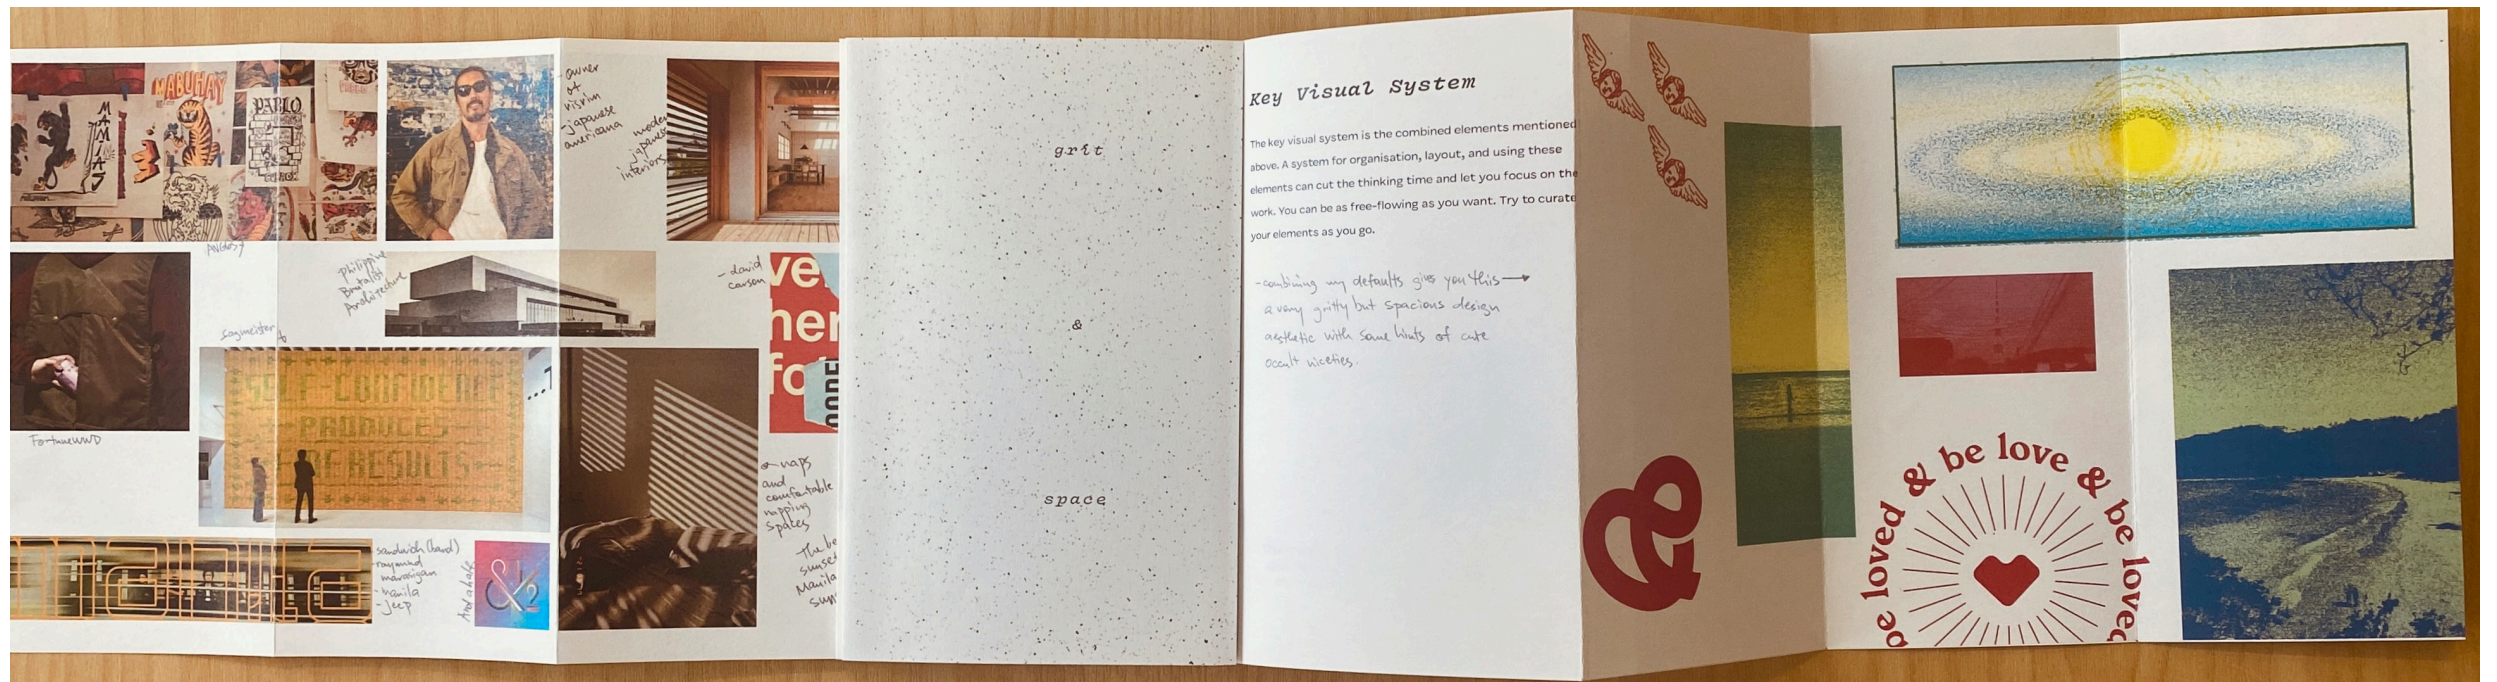 MABUHAY
MAMIAS
PABLO
owner
of
visvim
-japanese
americana
modern
japanese
interiors
Philippine
Brutalist
Architecture
- david
carson
ve
her
fo
sagmeister
SELF-CONFIDENCE
PRODUCES
RESULTS
FortuneWWD
naps
and
comfortable
napping
spaces
sandwich (band)
-raymund
marasigan
-manila
-jeep
And a half
&1/2
the be
sunse
Manila
sun
grit
&
space
Key Visual System
The key visual system is the combined elements mentioned
above. A system for organisation, layout, and using these
elements can cut the thinking time and let you focus on the
work. You can be as free-flowing as you want. Try to curate
your elements as you go.
-combining my defaults gives you this
a very gritty but spacious design
aesthetic with some hints of cute
occult niceties.
&
be loved & be love & be loved